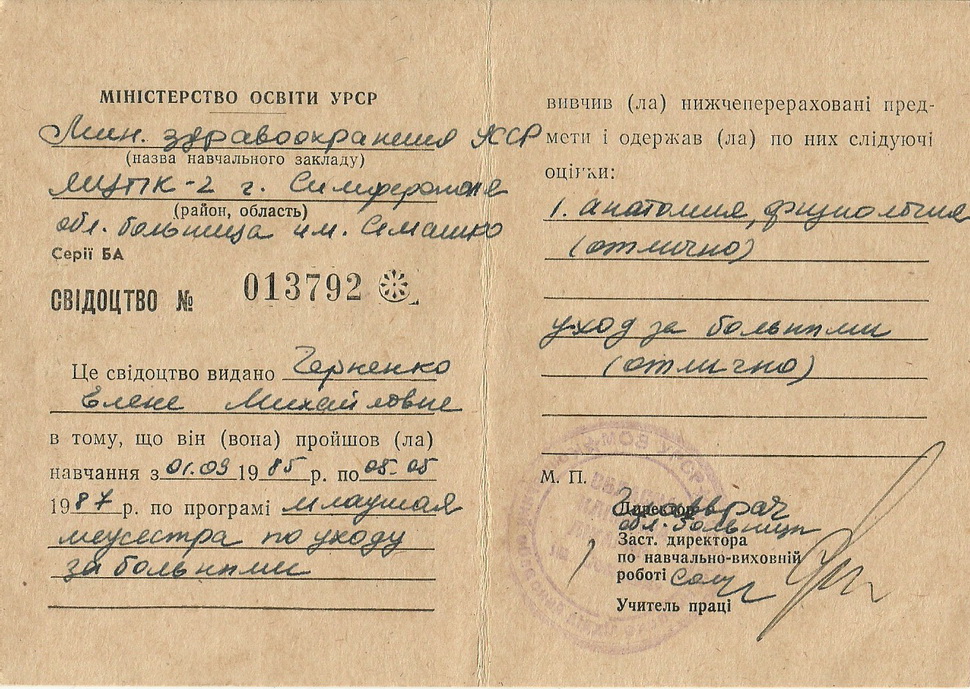 МІНІСТЕРСТВО ОСВІТИ УРСР
Мин. здравоохранения УССР
(назва навчального закладу)
МУПК-2 г. Симферополя
(район, область)
обл. больница им. Семашко
Серії БА
СВІДОЦТВО № 013792
Це свідоцтво видано Черненко
Елене Михайловне
в тому, що він (вона) пройшов (ла)
навчання з 01.09 1985 р. по 05.05
1987 р. по програмі младшая
медсестра по уходу
за больными
вивчив (ла) нижчеперераховані пред-
мети і одержав (ла) по них слідуючі
оцінки:
1. анатомия, физиология
(отлично)
уход за больными
(отлично)
М. П.
Директор Главврач
обл. больницы
Заст. директора
по навчально-виховній
роботі
Учитель праці